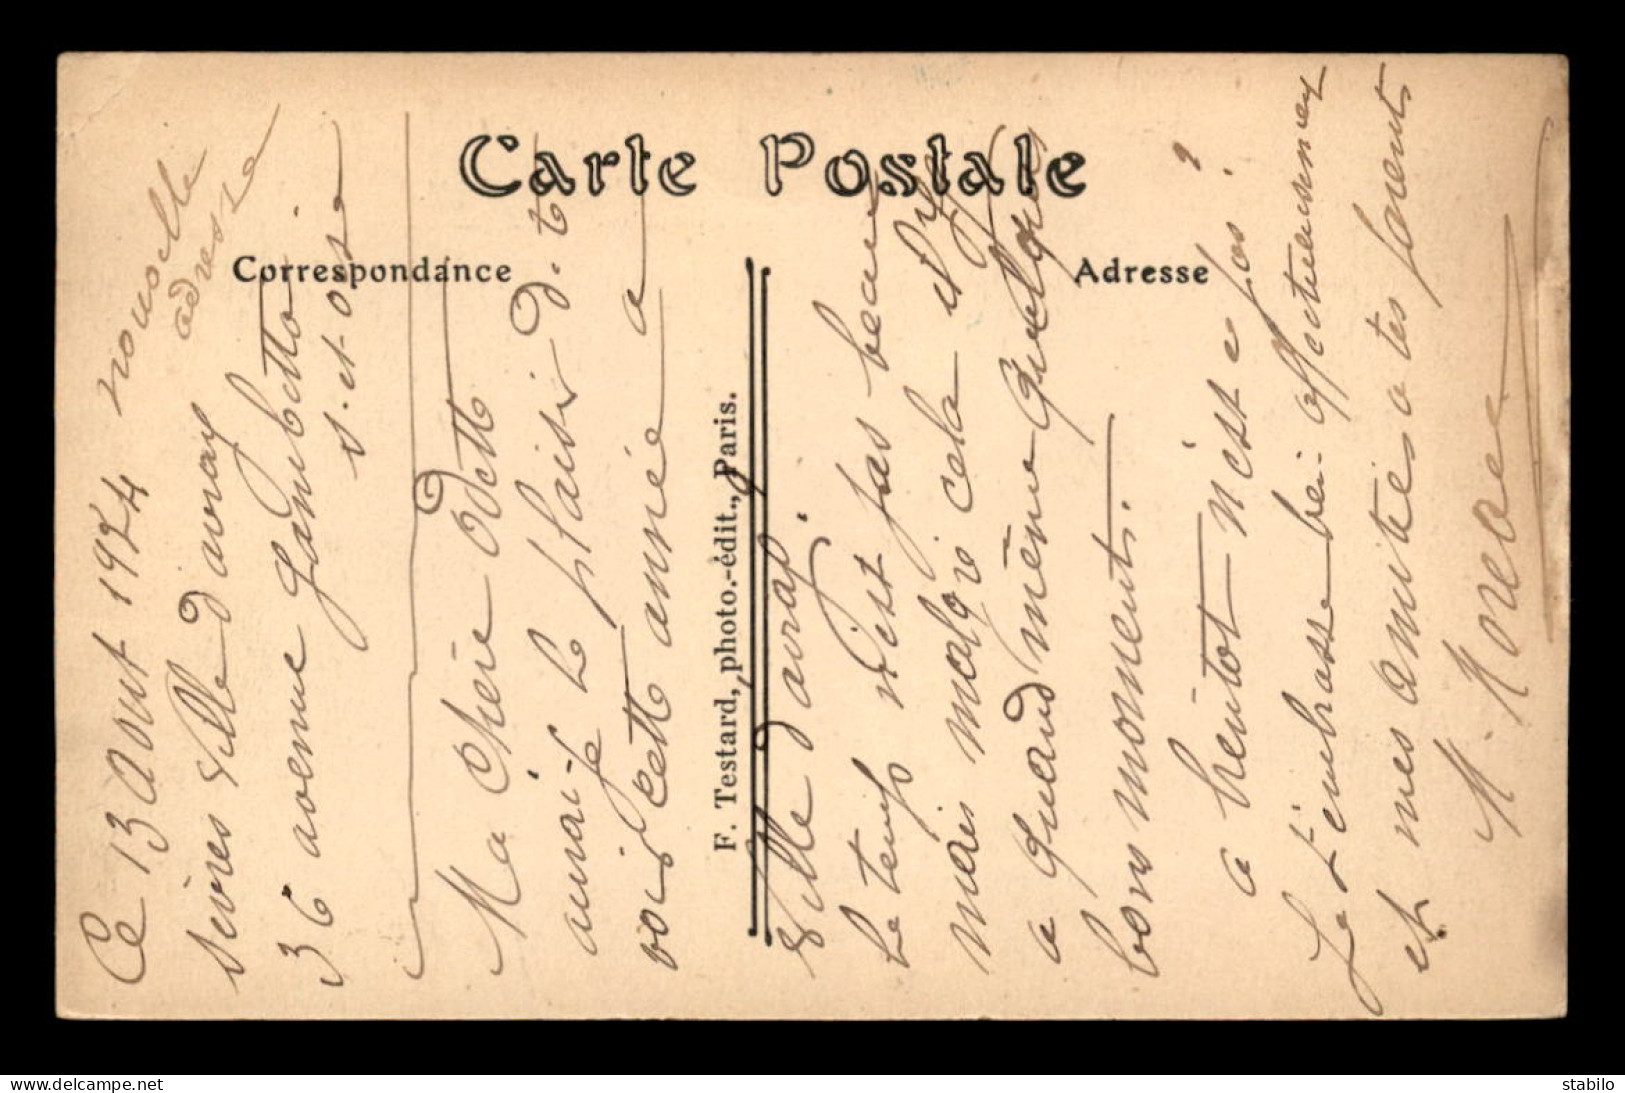 Carte Postale
Correspondance
Adresse
F. Testard, photo.-édit., Paris.
Ce 13 Aout 1924
nouvelle
adresse
Sèvres Ville d'avray
36 avenue Gambetta
S. et oise
Ma chère Odette
aurai-je le plaisir d. te
voir cette année a
Ville d'avray.
le temps n'est pas beau
mais malgré cela il y
a quand même quelques
bons moments.
a bientot n'est e pas?
Je t'embrasse bien affectueusement
et mes amitiés a tes parents
M. Moreau
www.delcampe.net
stabilo